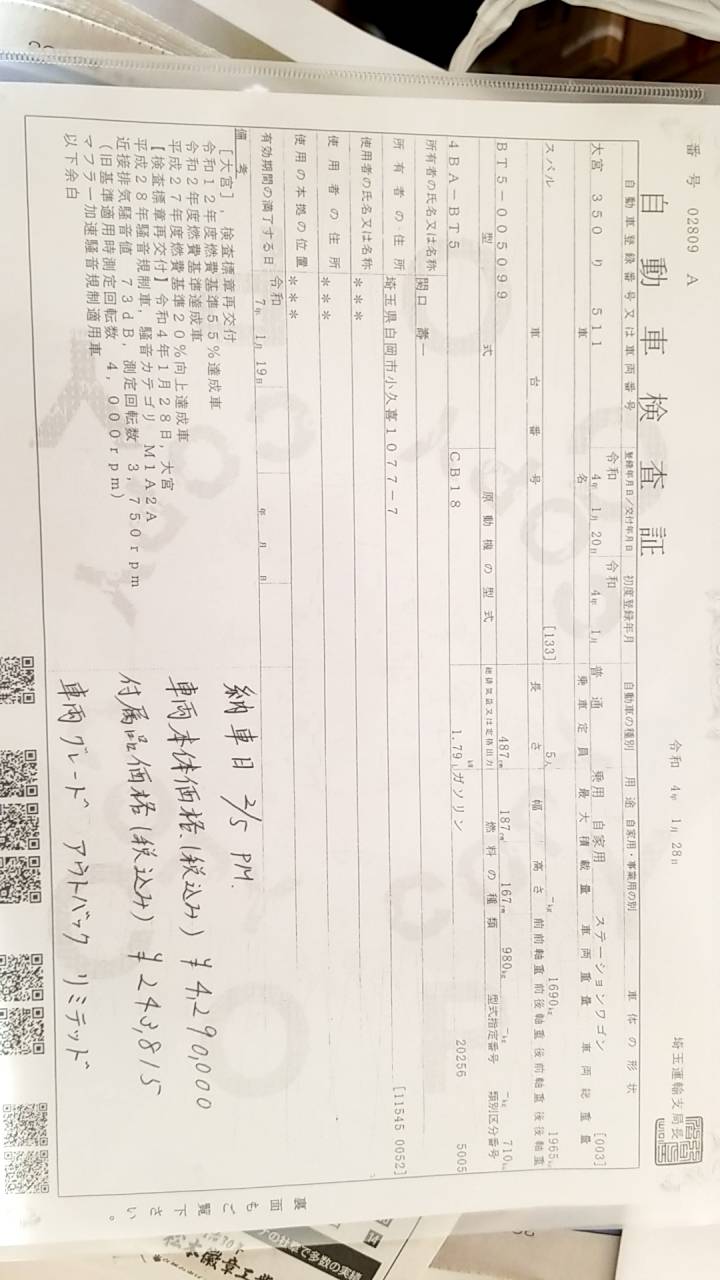 番号 02809 A
自動車検査証
令和 4年 1月 28日
埼玉運輸支局長
自動車登録番号又は車両番号 登録年月日/交付年月日 初度登録年月 自動車の種別 用途 自家用・事業用の別 車体の形状
大宮 350 り 511 令和 4年 1月 20日 令和 4年 1月 普通 乗用 自家用 ステーションワゴン [003]
車名 乗車定員 最大積載量 車両重量 車両総重量
スバル [133] 5人 -kg 1690kg 1965kg
車台番号 長さ 幅 高さ 前前軸重 前後軸重 後前軸重 後後軸重
BT5-005099 487cm 187cm 167cm 980kg -kg -kg 710kg
型式 原動機の型式 総排気量又は定格出力 燃料の種類 型式指定番号 類別区分番号
4BA-BT5 CB18 1.79 kW L ガソリン 20256 5005
所有者の氏名又は名称 関口 壽一
所有者の住所 埼玉県白岡市小久喜1077-7 [11545 0052]
使用者の氏名又は名称 ***
使用者の住所 ***
使用の本拠の位置 ***
有効期間の満了する日 令和 7年 1月 19日 年 月 日
備考
[大宮],検査標章再交付
令和12年度燃費基準55%達成車
令和2年度燃費基準達成車
平成27年度燃費基準20%向上達成車
【検査標章再交付】令和4年1月28日,大宮
平成28年騒音規制車,騒音カテゴリ M1A2A
近接排気騒音値 73dB,測定回転数 3,750rpm
(旧基準適用時測定回転数 4,000rpm)
マフラー加速騒音規制適用車
以下余白
納車日 2/5 PM.
車両本体価格(税込み) ¥4,290,000
付属品価格(税込み) ¥243,815
車両グレード アウトバック リミテッド
裏面もご覧下さい。
の社章で多数の実績